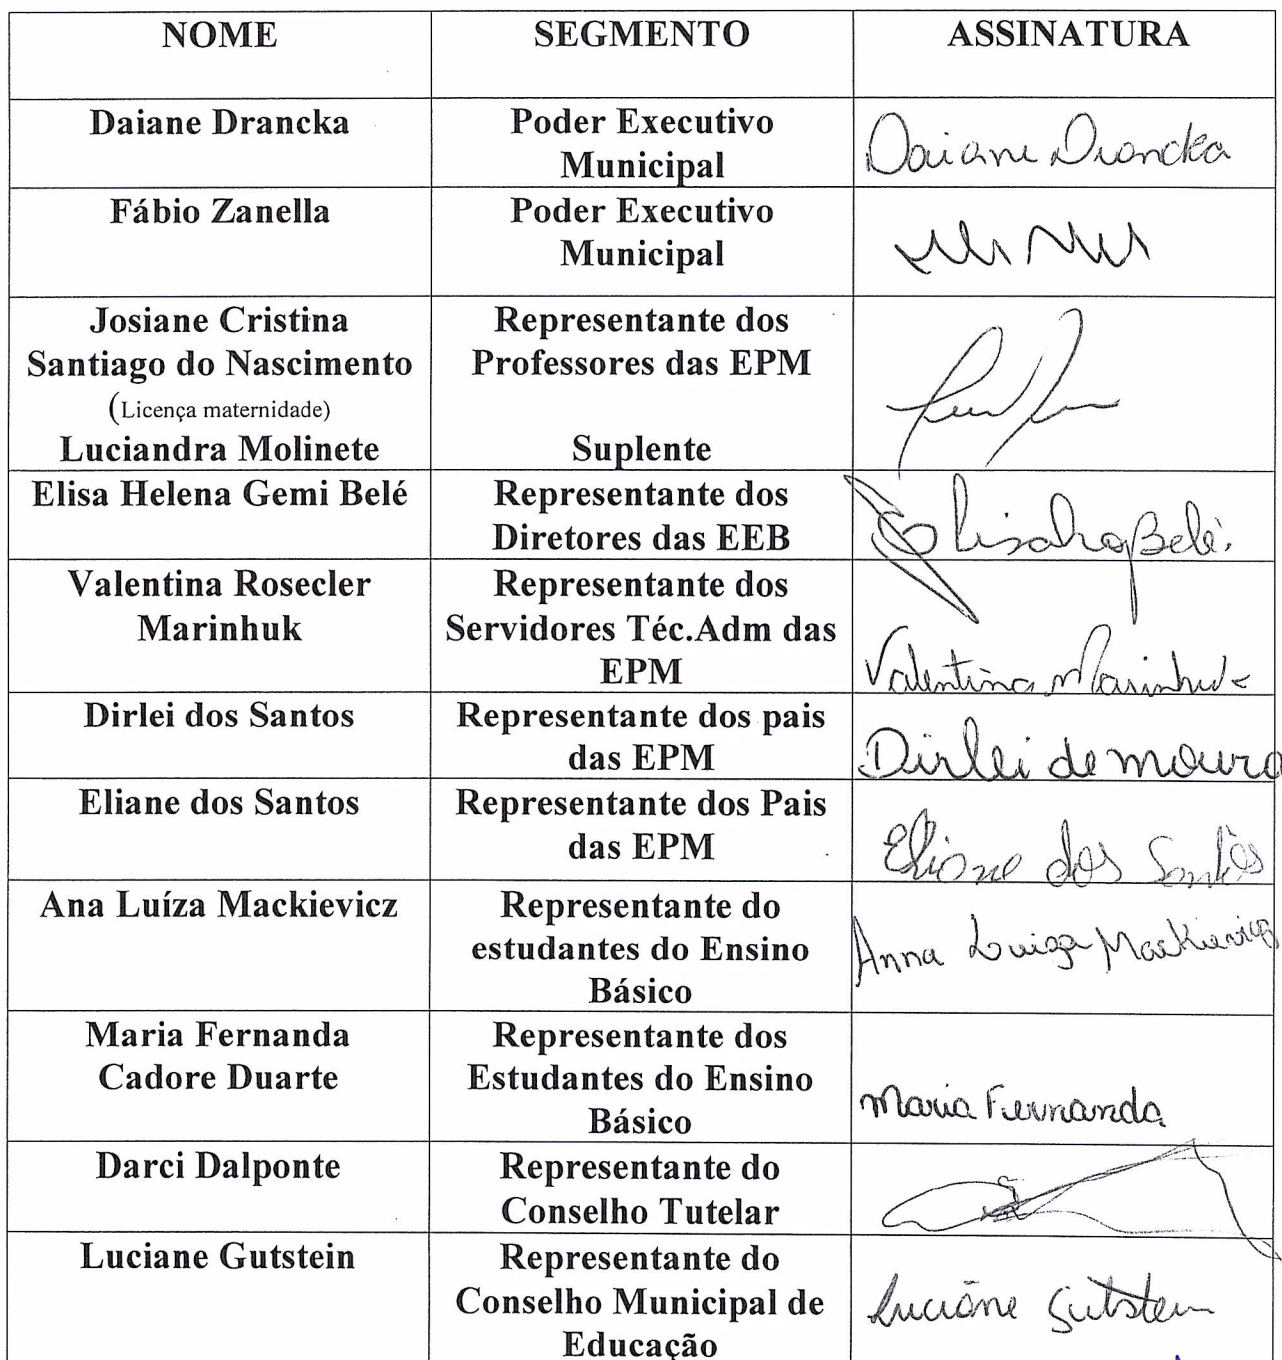 NOME SEGMENTO ASSINATURA
Daiane Drancka Poder Executivo
Municipal Daiane Drancka
Fábio Zanella Poder Executivo
Municipal
Josiane Cristina Representante dos
Santiago do Nascimento Professores das EPM
(Licença maternidade)
Luciandra Molinete Suplente
Elisa Helena Gemi Belé Representante dos
Diretores das EEB Belé.
Valentina Rosecler Representante dos
Marinhuk Servidores Téc.Adm das
EPM Valentina Marinhuk
Dirlei dos Santos Representante dos pais
das EPM Dirlei de moura
Eliane dos Santos Representante dos Pais
das EPM Eliane dos Santos
Ana Luíza Mackievicz Representante do
estudantes do Ensino Anna Luiza Mackievicz
Básico
Maria Fernanda Representante dos
Cadore Duarte Estudantes do Ensino
Básico Maria Fernanda
Darci Dalponte Representante do
Conselho Tutelar
Luciane Gutstein Representante do
Conselho Municipal de Luciane Gutstein
Educação